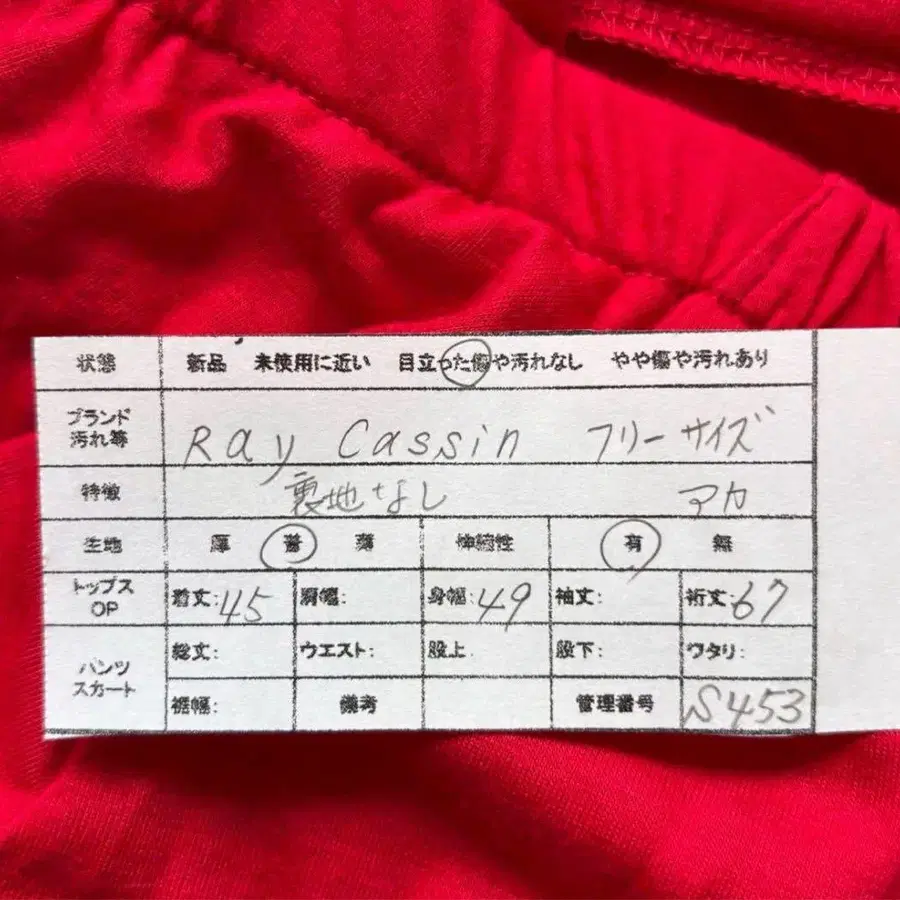 状態 新品 未使用に近い 目立った傷や汚れなし やや傷や汚れあり
ブランド
汚れ等
Ray Cassin フリーサイズ
特徴 裏地なし アカ
生地 厚 普 薄 伸縮性 有 無
トップス
OP
着丈:45 肩幅: 身幅:49 袖丈: 裄丈:67
パンツ
スカート
総丈: ウエスト: 股上: 股下: ワタリ:
裾幅: 備考 管理番号 S453